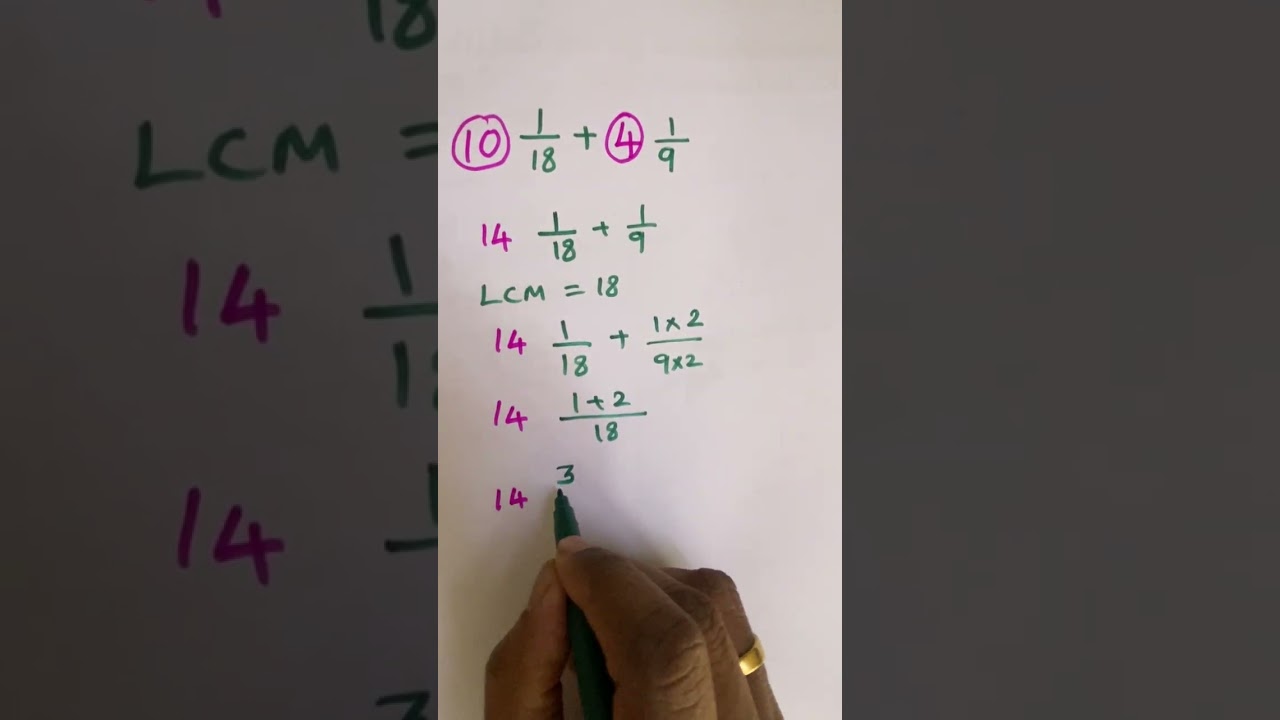 10 1/18 + 4 1/9
14 1/18 + 1/9
LCM = 18
14 1/18 + 1×2/9×2
14 1+2/18
14 3